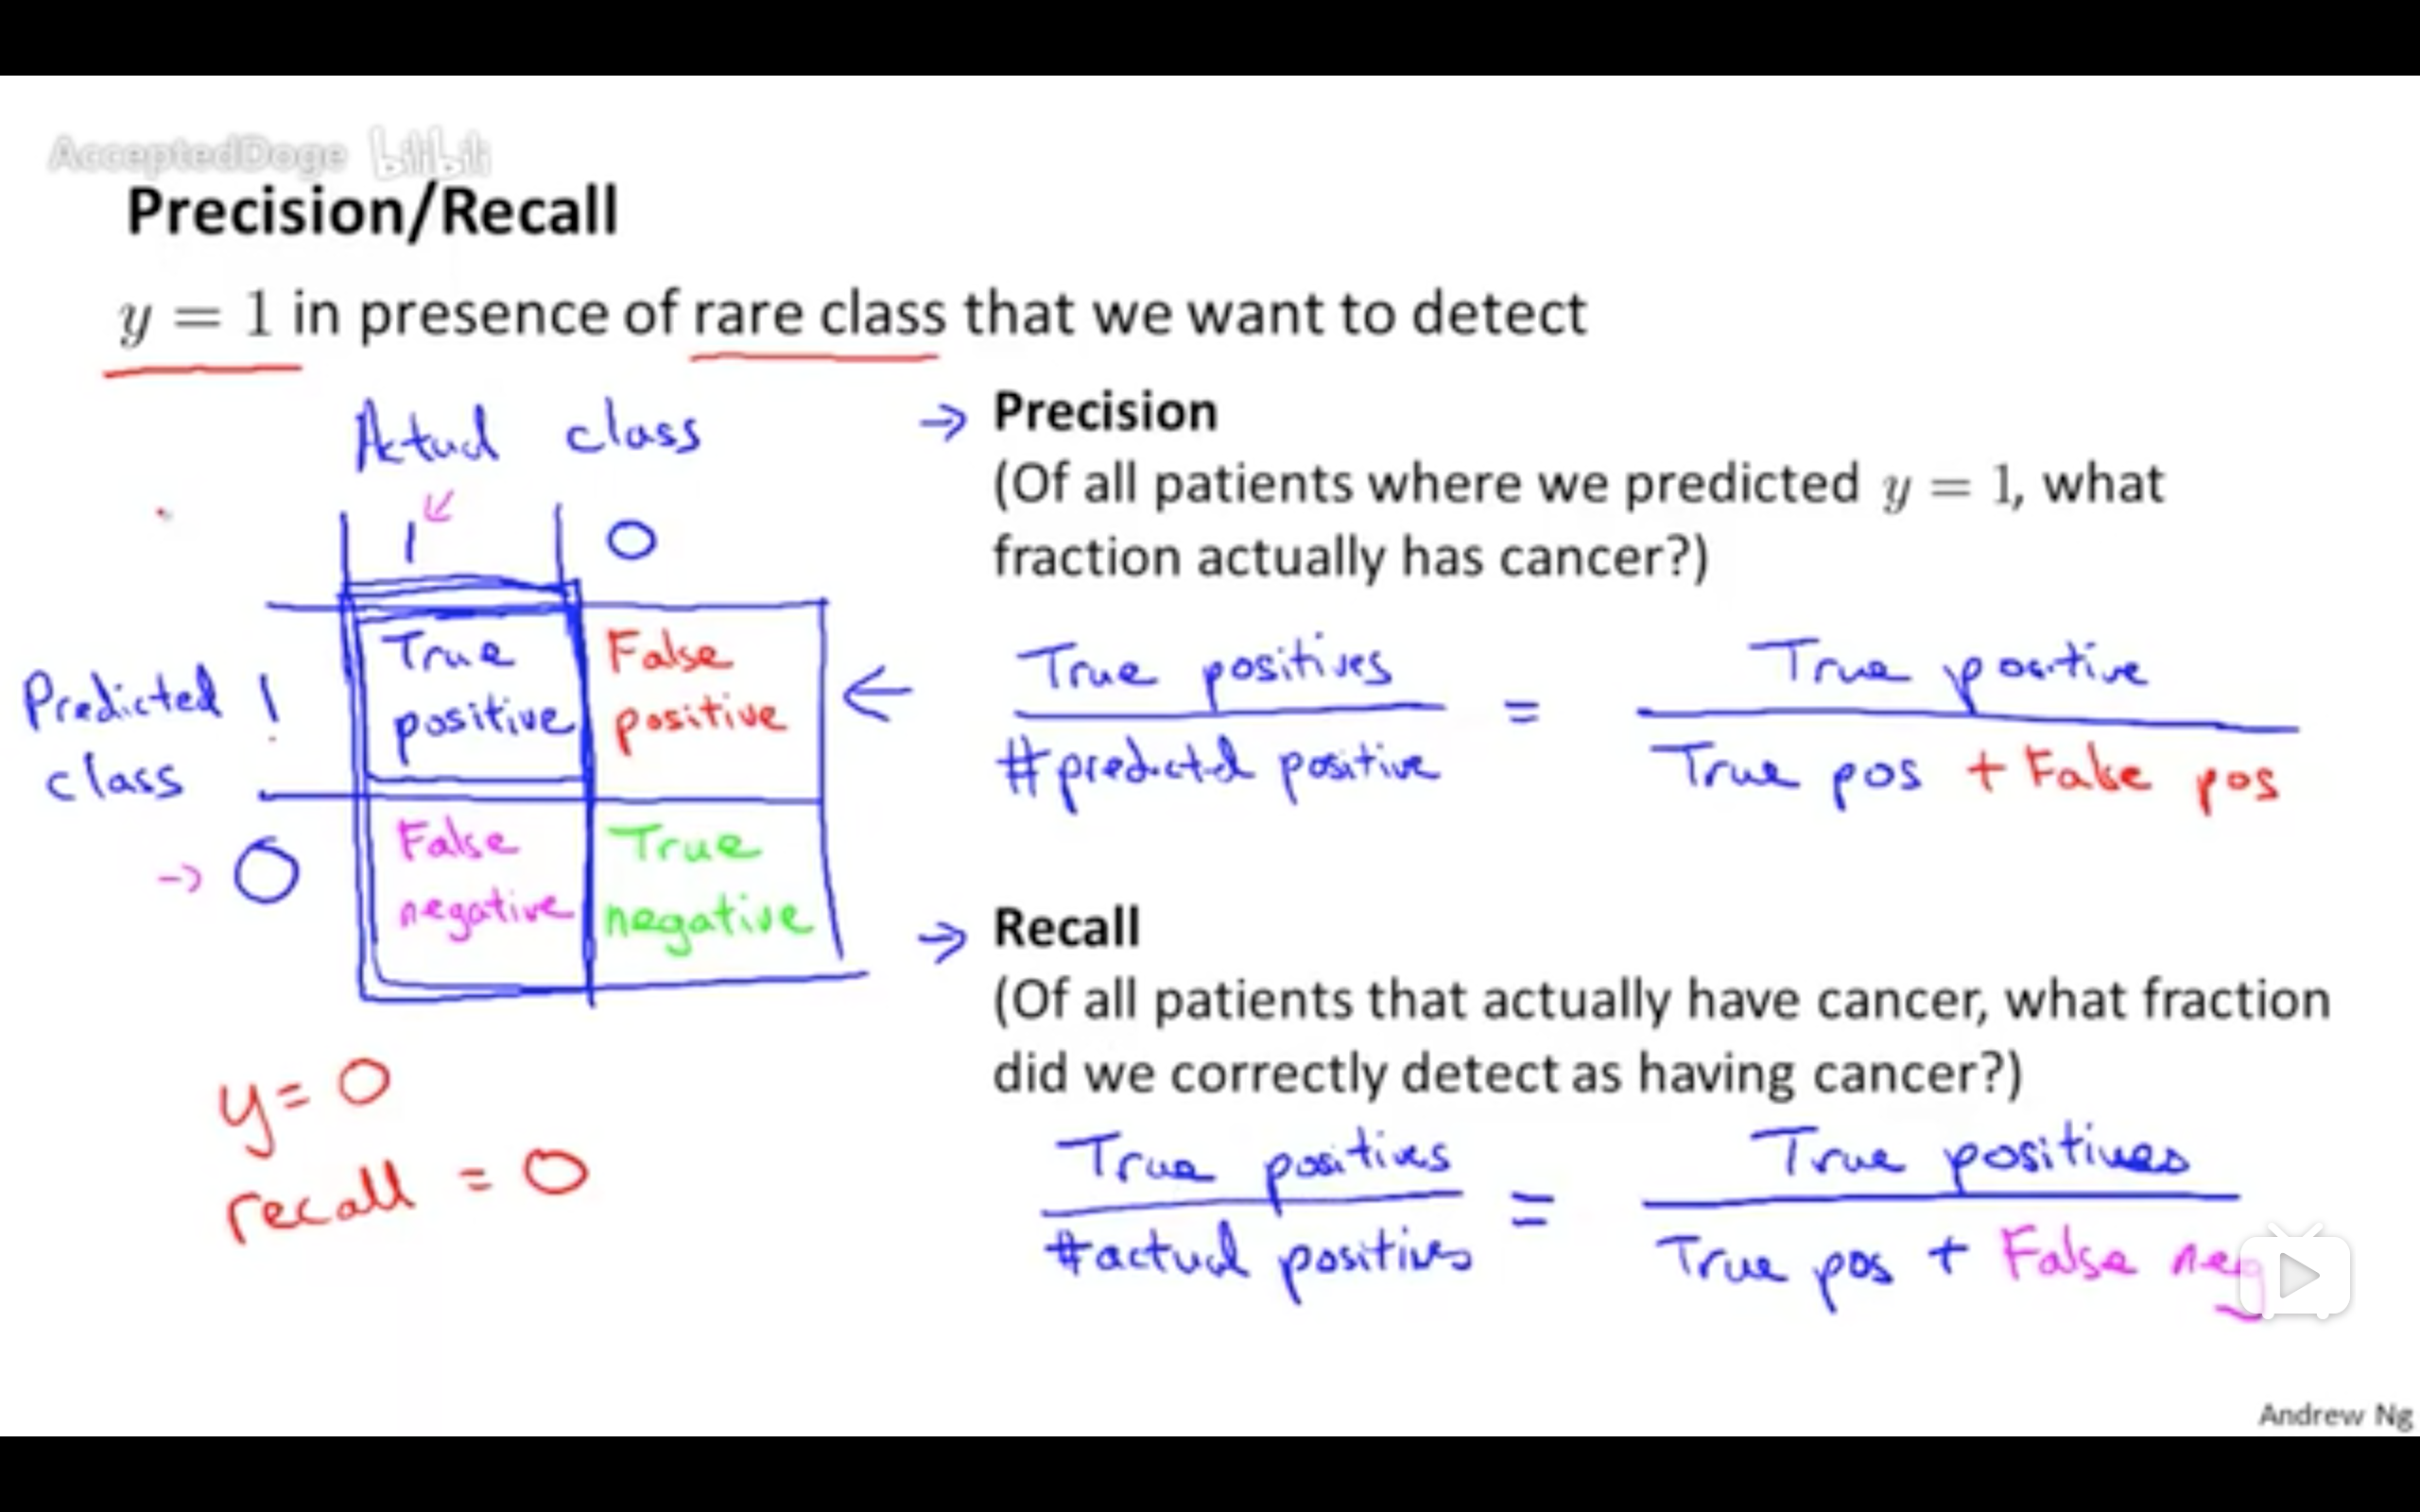 AcceptedDoge bilibili
Precision/Recall
y = 1 in presence of rare class that we want to detect
Actual class
1 0
Predicted 1
class
0
True positive
False positive
False negative
True negative
y = 0
recall = 0
→ Precision
(Of all patients where we predicted y = 1, what
fraction actually has cancer?)
True positives / #predicted positive = True positive / True pos + False pos
→ Recall
(Of all patients that actually have cancer, what fraction
did we correctly detect as having cancer?)
True positives / #actual positives = True positives / True pos + False neg
Andrew Ng